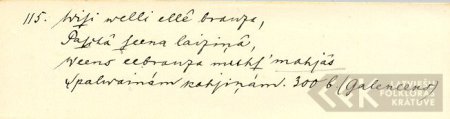 115. Wisi welli ellê brauza,
Pasṫâ seena laiziņâ,
Weens eebrauza muhs' mahjâs
Spalwainêm kahjiņâm. 300 b (Galeneeks)
LATVIEŠU
FOLKLORAS
KRĀTUVE